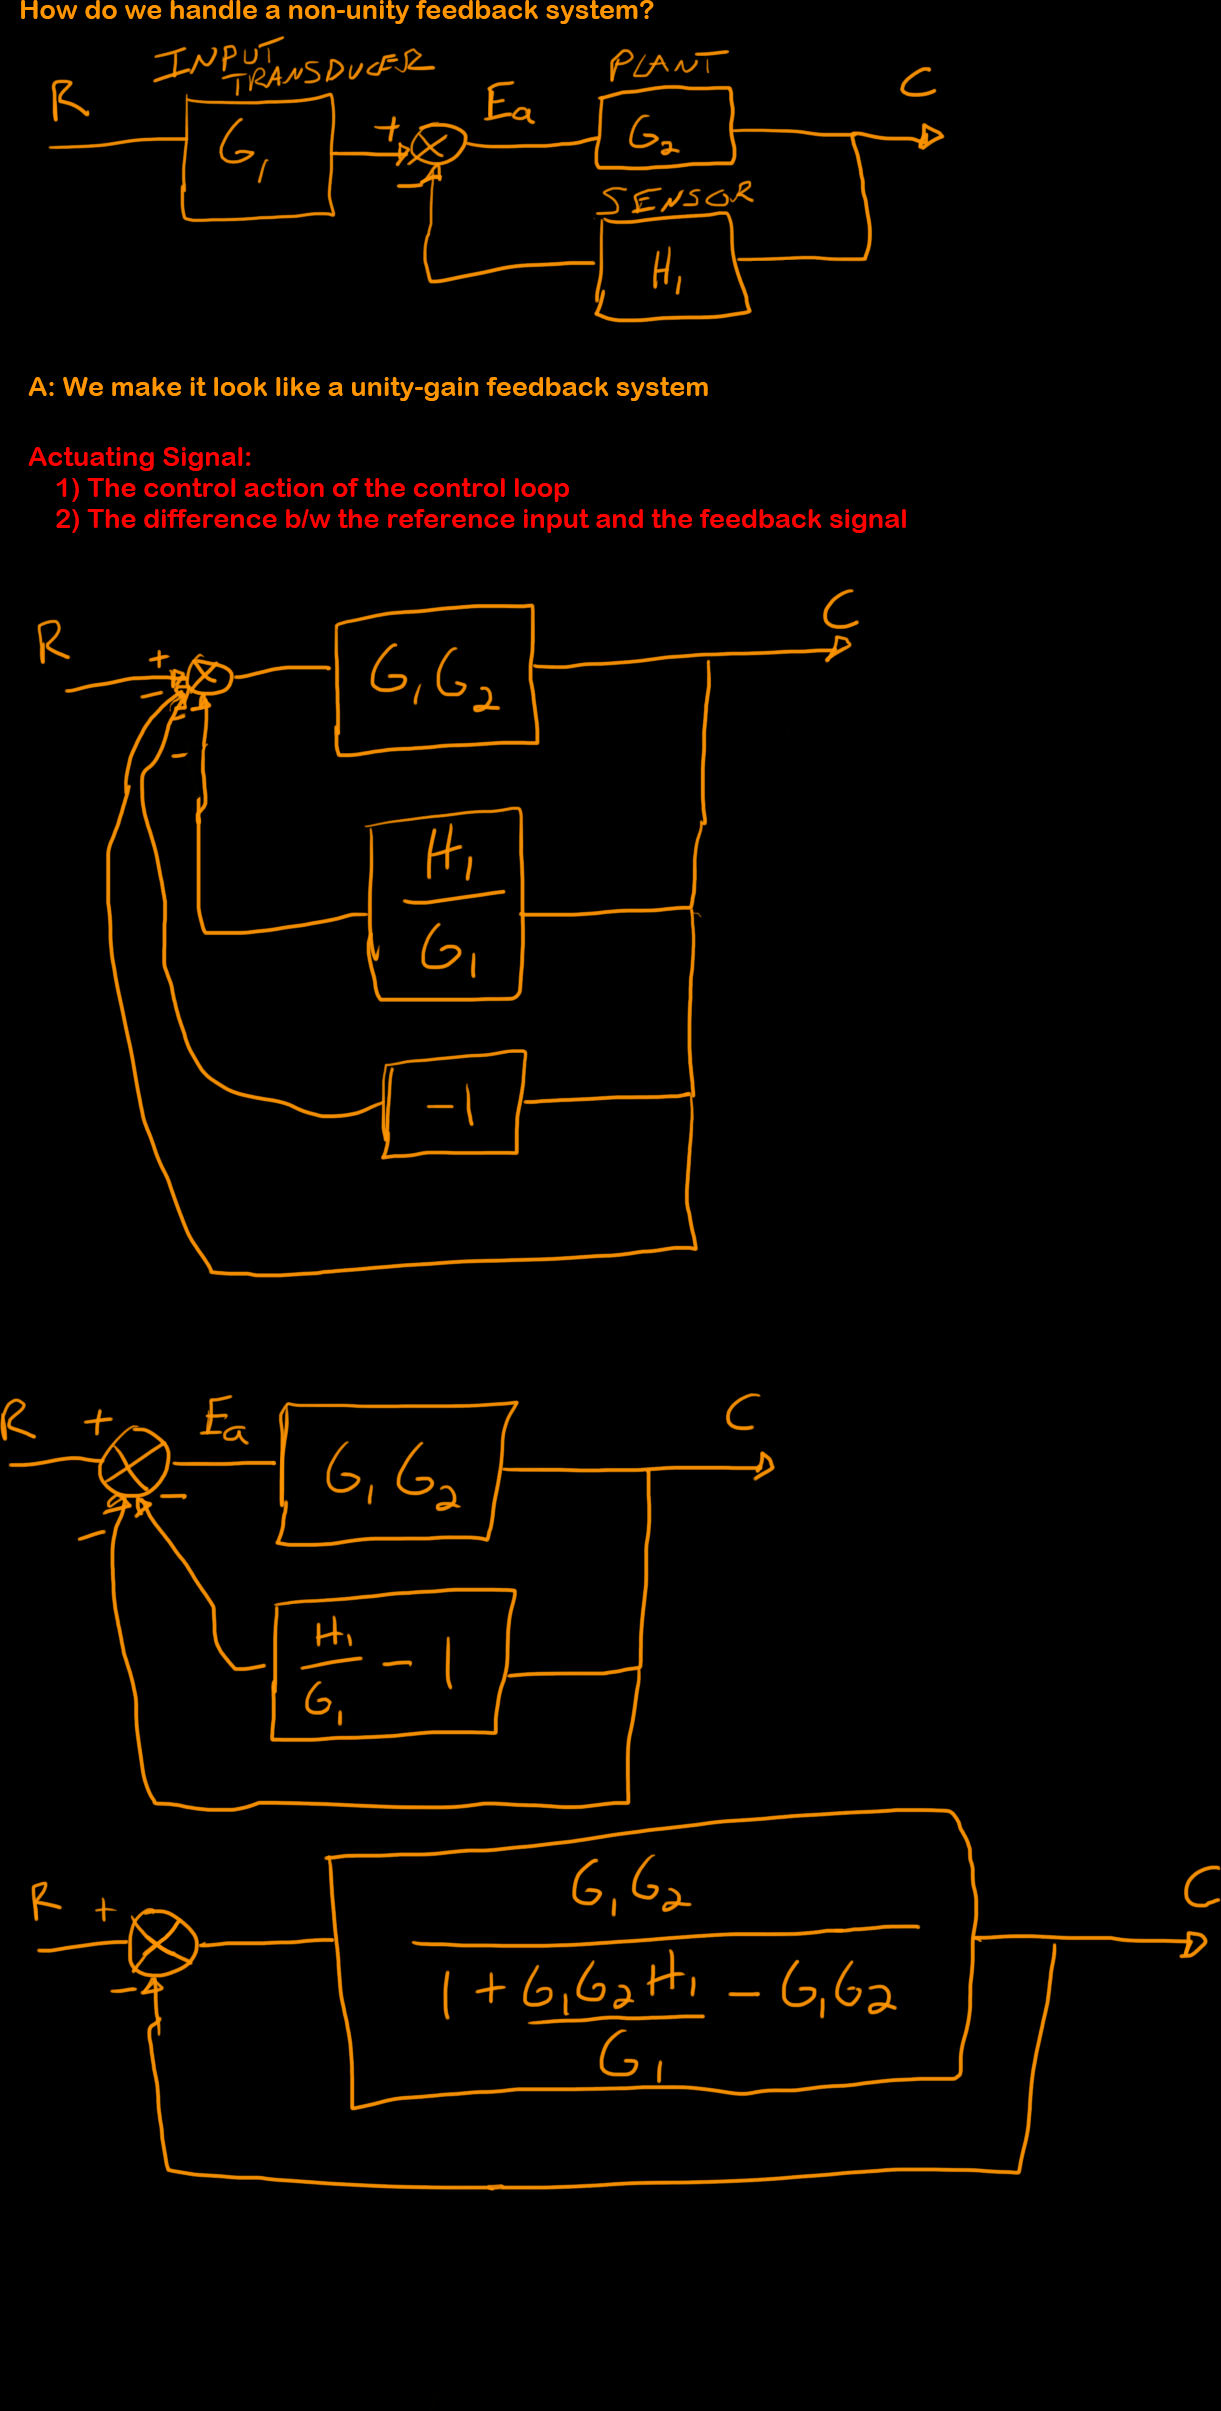 How do we handle a non-unity feedback system?
INPUT
TRANSDUCER
PLANT
R
G₁
+
−
Ea
G₂
C
SENSOR
H₁
A: We make it look like a unity-gain feedback system
Actuating Signal:
1) The control action of the control loop
2) The difference b/w the reference input and the feedback signal
R
+
−
−
−
G₁G₂
C
H₁
G₁
−1
R
+
−
−
Ea
G₁G₂
C
H₁
G₁
− 1
R
+
−
G₁G₂
1 + G₁G₂H₁ − G₁G₂
G₁
C